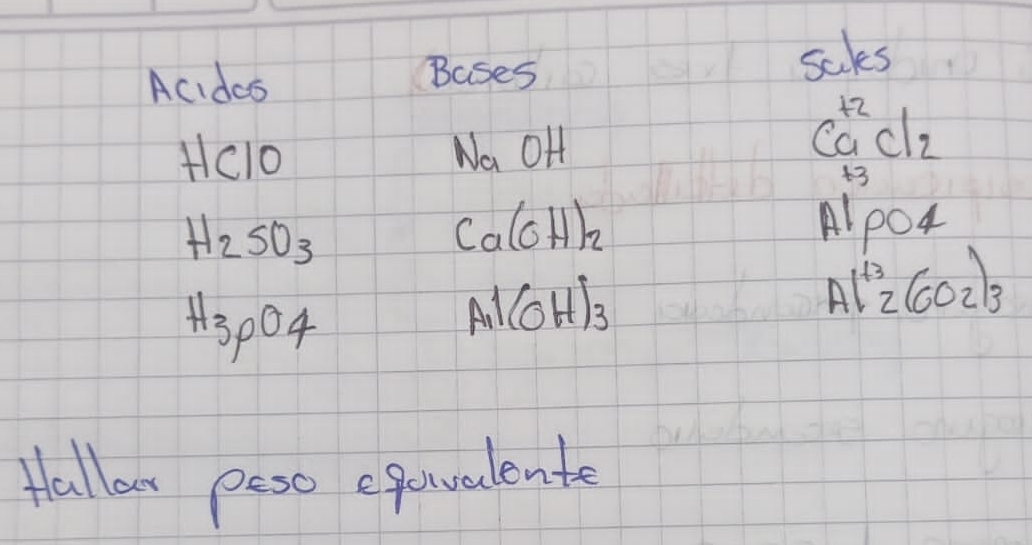 Acidos Bases Sales
HClO Na OH Ca+2 Cl2
H2SO3 Ca(OH)2 Al+3 pO4
H3pO4 Al(OH)3 Al+3 2(CO2)3
Hallar peso equivalente